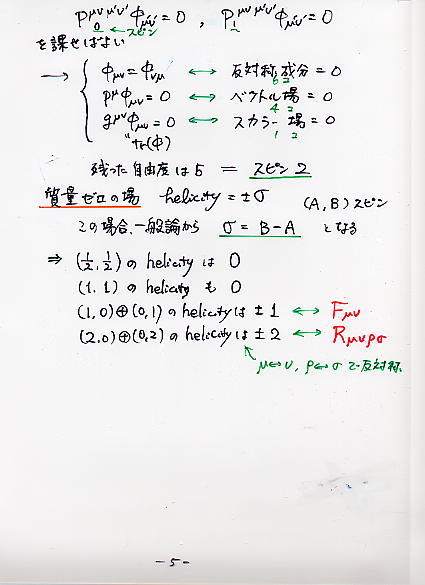 P₀^{μν μ'ν'} φ_{μ'ν'} = 0 , P₁^{μν μ'ν'} φ_{μ'ν'} = 0
← スピン
を課せばよい
→ { φ_{μν} = φ_{νμ} ↔ 反対称成分 = 0
6コ
p^μ φ_{μν} = 0 ↔ ベクトル場 = 0
4コ
g^{μν} φ_{μν} = 0 ↔ スカラー場 = 0
" tr(φ) 1コ
残った自由度は5 = スピン2
質量ゼロの場 helicity = ±σ (A, B) スピン
この場合、一般論から σ = B − A となる
⇒ (½, ½) の helicity は 0
(1, 1) の helicity も 0
(1, 0) ⊕ (0, 1) の helicity は ±1 ↔ F_{μν}
(2, 0) ⊕ (0, 2) の helicity は ±2 ↔ R_{μνρσ}
μ↔ν, ρ↔σ で反対称
- 5 -